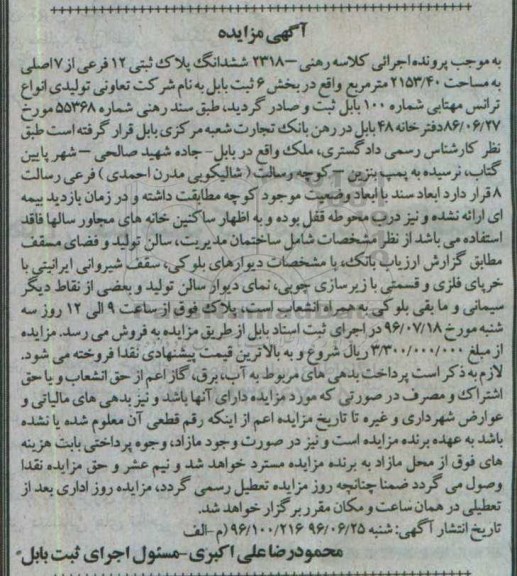 آگهی مزایده
به موجب پرونده اجرائی کلاسه رهنی –۲۳۱۸ ششدانگ پلاک ثبتی ۱۲ فرعی از ۷ اصلی
به مساحت ۲۱۵۳/۴۰ مترمربع واقع در بخش ۶ ثبت بابل به نام شرکت تعاونی تولیدی انواع
ترانس مهتابی شماره ۱۰۰ بابل ثبت و صادر گردید، طبق سند رهنی شماره ۵۵۳۶۸ مورخ
۸۶/۰۶/۲۷ دفترخانه ۴۸ بابل در رهن بانک تجارت شعبه مرکزی بابل قرار گرفته است طبق
نظر کارشناس رسمی دادگستری، ملک واقع در بابل- جاده شهید صالحی – شهر پایین
گتاب، نرسیده به پمپ بنزین – کوچه رسالت ( شالیکوبی مدرن احمدی ) فرعی رسالت
۸ قرار دارد ابعاد سند با ابعاد وضعیت موجود کوچه مطابقت داشته و در زمان بازدید بیمه
ای ارائه نشده و نیز درب محوطه قفل بوده و به اظهار ساکنین خانه های مجاور سالها فاقد
استفاده می باشد از نظر مشخصات شامل ساختمان مدیریت، سالن تولید و فضای مسقف
مطابق گزارش ارزیاب بانک، با مشخصات دیوارهای بلوکی، سقف شیروانی ایرانیتی با
خرپای فلزی و قسمتی با زیرسازی چوبی، نمای دیوار سالن تولید و بعضی از نقاط دیگر
سیمانی و ما بقی بلوکی به همراه انشعاب است، پلاک فوق از ساعت ۹ الی ۱۲ روز سه
شنبه مورخ ۹۶/۰۷/۱۸ در اجرای ثبت اسناد بابل از طریق مزایده به فروش می رسد. مزایده
از مبلغ ۳/۳۰۰/۰۰۰/۰۰۰ ریال شروع و به بالاترین قیمت پیشنهادی نقدا فروخته می شود.
لازم به ذکر است پرداخت بدهی های مربوط به آب، برق، گاز اعم از حق انشعاب و یا حق
اشتراک و مصرف در صورتی که مورد مزایده دارای آنها باشد و نیز بدهی های مالیاتی و
عوارض شهرداری و غیره تا تاریخ مزایده اعم از اینکه رقم قطعی آن معلوم شده یا نشده
باشد به عهده برنده مزایده است و نیز در صورت وجود مازاد، وجوه پرداختی بابت هزینه
های فوق از محل مازاد به برنده مزایده مسترد خواهد شد و نیم عشر و حق مزایده نقدا
وصول می گردد ضمنا چنانچه روز مزایده تعطیل رسمی گردد، مزایده روز اداری بعد از
تعطیلی در همان ساعت و مکان مقرر برگزار خواهد شد.
تاریخ انتشار آگهی: شنبه ۹۶/۰۶/۲۵ ۹۶/۱۰۰/۲۱۶ (م-الف
محمودرضا علی اکبری-مسئول اجرای ثبت بابل